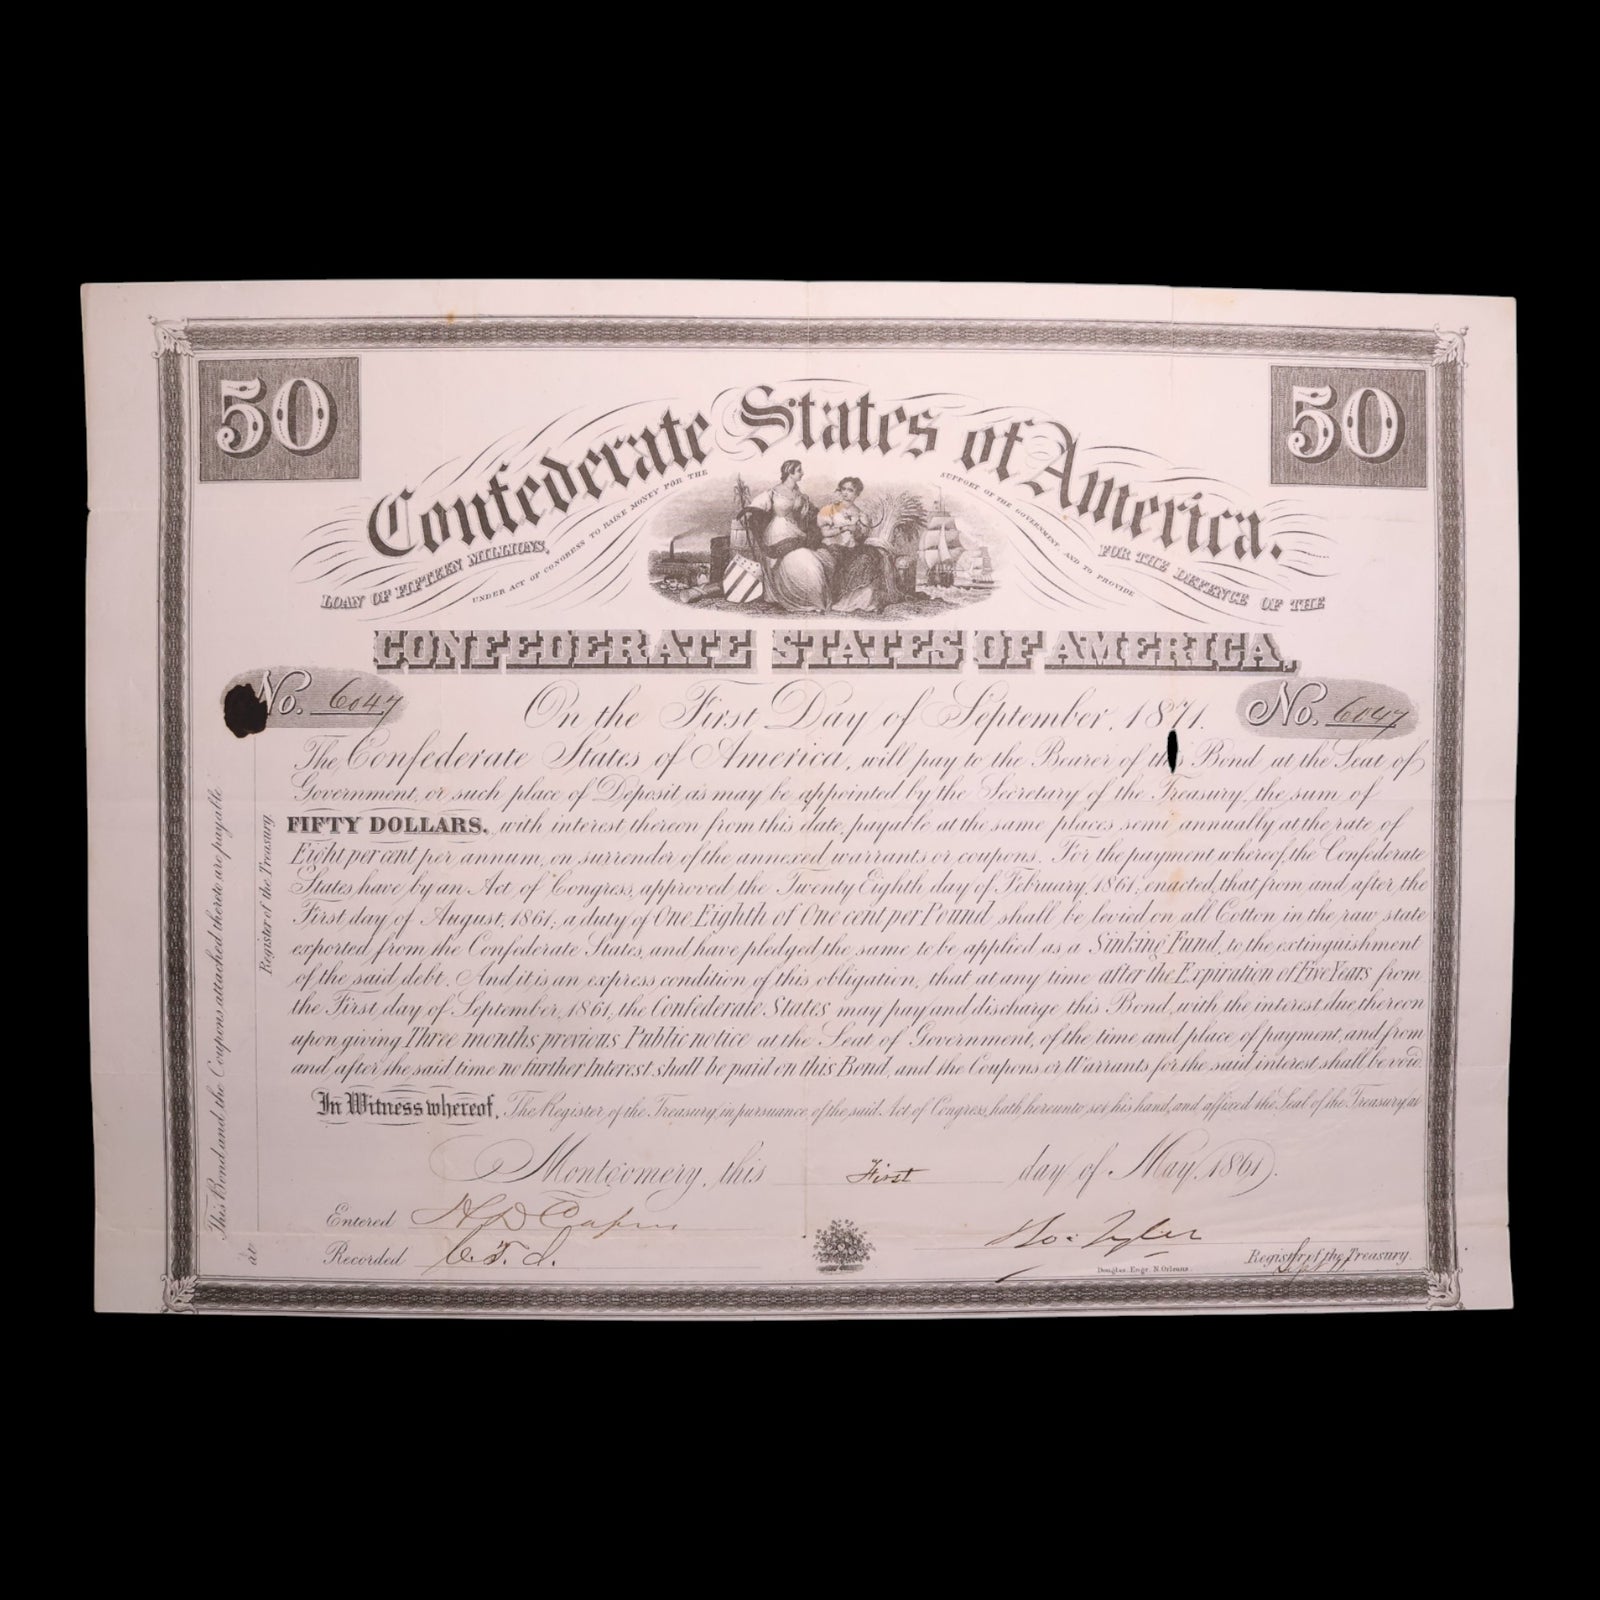 50
50
Confederate States of America.
LOAN OF FIFTEEN MILLIONS,
UNDER ACT OF CONGRESS TO RAISE MONEY FOR THE
SUPPORT OF THE GOVERNMENT, AND TO PROVIDE
FOR THE DEFENCE OF THE
CONFEDERATE STATES OF AMERICA.
No. 6047
On the First Day of September, 1871.
No. 6047
The Confederate States of America, will pay to the Bearer of this Bond at the Seat of
Government, or such place of Deposit as may be appointed by the Secretary of the Treasury, the sum of
FIFTY DOLLARS, with interest thereon from this date, payable at the same places semi annually at the rate of
Eight per cent per annum, on surrender of the annexed warrants or coupons. For the payment whereof, the Confederate
States, have by an Act of Congress, approved the Twenty Eighth day of February, 1861; enacted, that from and after the
First day of August, 1861; a duty of One Eighth of One cent per Pound shall be levied on all Cotton in the raw state
exported from the Confederate States, and have pledged the same to be applied as a Sinking Fund, to the extinguishment
of the said debt. And it is an express condition of this obligation, that at any time after the Expiration of Five Years from
the First day of September, 1861, the Confederate States may pay and discharge this Bond, with the interest due thereon
upon giving Three months previous Public notice at the Seat of Government, of the time and place of payment, and from
and after the said time no further Interest shall be paid on this Bond, and the Coupons or Warrants for the said interest shall be void.
In Witness whereof, The Register of the Treasury, in pursuance of the said Act of Congress, hath hereunto set his hand, and affixed the Seal of the Treasury, at
Montgomery, this First day of May, 1861.
Entered
Recorded C. T. J.
Register of the Treasury.
Douglas. Engr. N. Orleans.
This Bond and the Coupons attached thereto are payable
at
Register of the Treasury